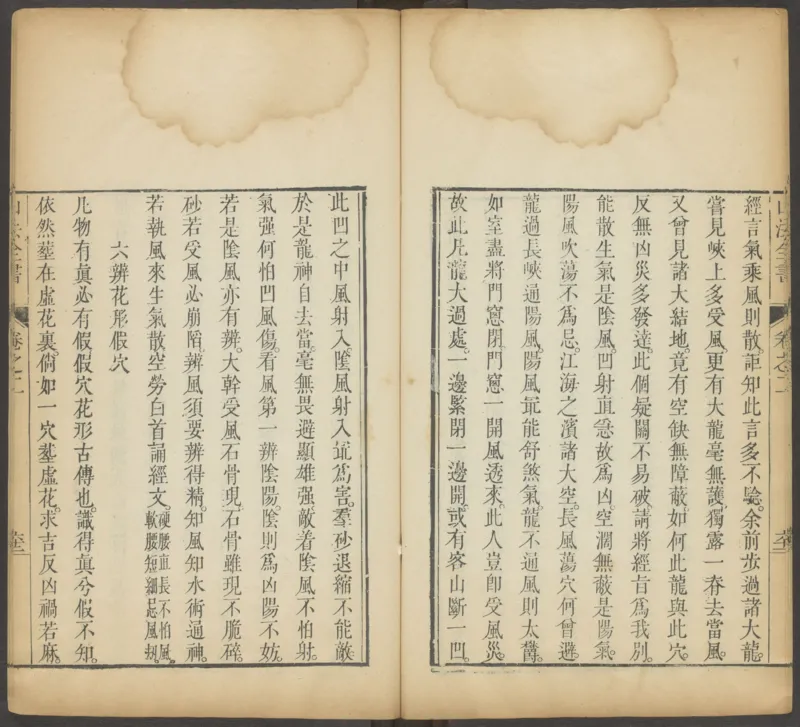 經言氣乘風則散詎知此言多不驗余前步過諸大龍
嘗見峽上多受風更有大龍毫無護獨露一脊去當風
又曾見諸大結地竟有空缺無障蔽如何此龍與此穴
反無凶災多發達此個疑關不易破請將經旨爲我別
能散生氣是陰風凹射直急故爲凶空濶無蔽是陽氣
陽風吹蕩不爲忌江海之濱諸大空長風蕩穴何曾避
龍過長峽通陽風陽風最能舒煞氣龍不通風則太鬱
如室盡將門窓閉門窓一開風透來此人豈卽受風災
故此凡龍大過處一邊緊閉一邊開或有客山斷一凹
山法全書
卷之十
此凹之中風射入陰風射入最爲害羣砂退縮不能敵
於是龍神自去當毫無畏避顯雄强敵着陰風不怕射
氣强何怕凹風傷看風第一辨陰陽陰則爲凶陽不妨
若是陰風亦有辨大幹受風石骨現石骨雖現不脆碎
砂若受風必崩陷辨風須要辨得精知風知水術通神
若執風來生氣散空勞白首誦經文硬腰直長不怕風軟腰短細忌風刼
六辨花形假穴
凡物有眞必有假假穴花形古傳也識得眞兮假不知
依然塟在虛花裏倘如一穴塟虛花求吉反凶禍若麻
山法全書